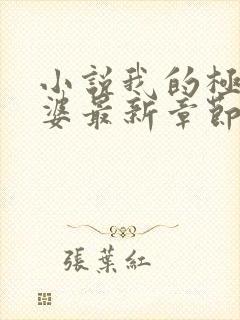 小説我的極
婆最新章節
張葉紅